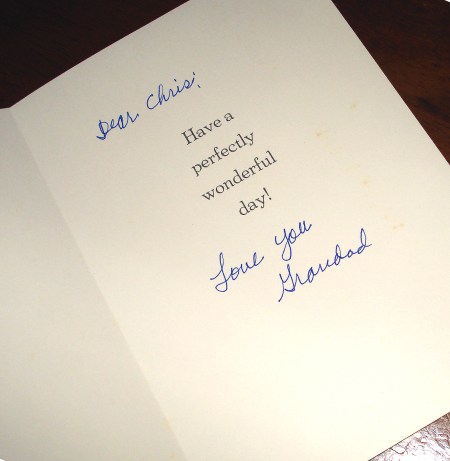 Dear Chris:
Have a
perfectly
wonderful
day!
Love you
Grandad